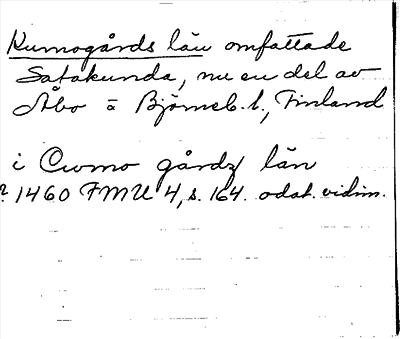 Kumogårds län omfattade
Satakunda, nu en del av
Åbo o Björneb. l., Finland
i Cwmo gårdz län
? 1460 FMU 4, s. 164. odat. vidim.